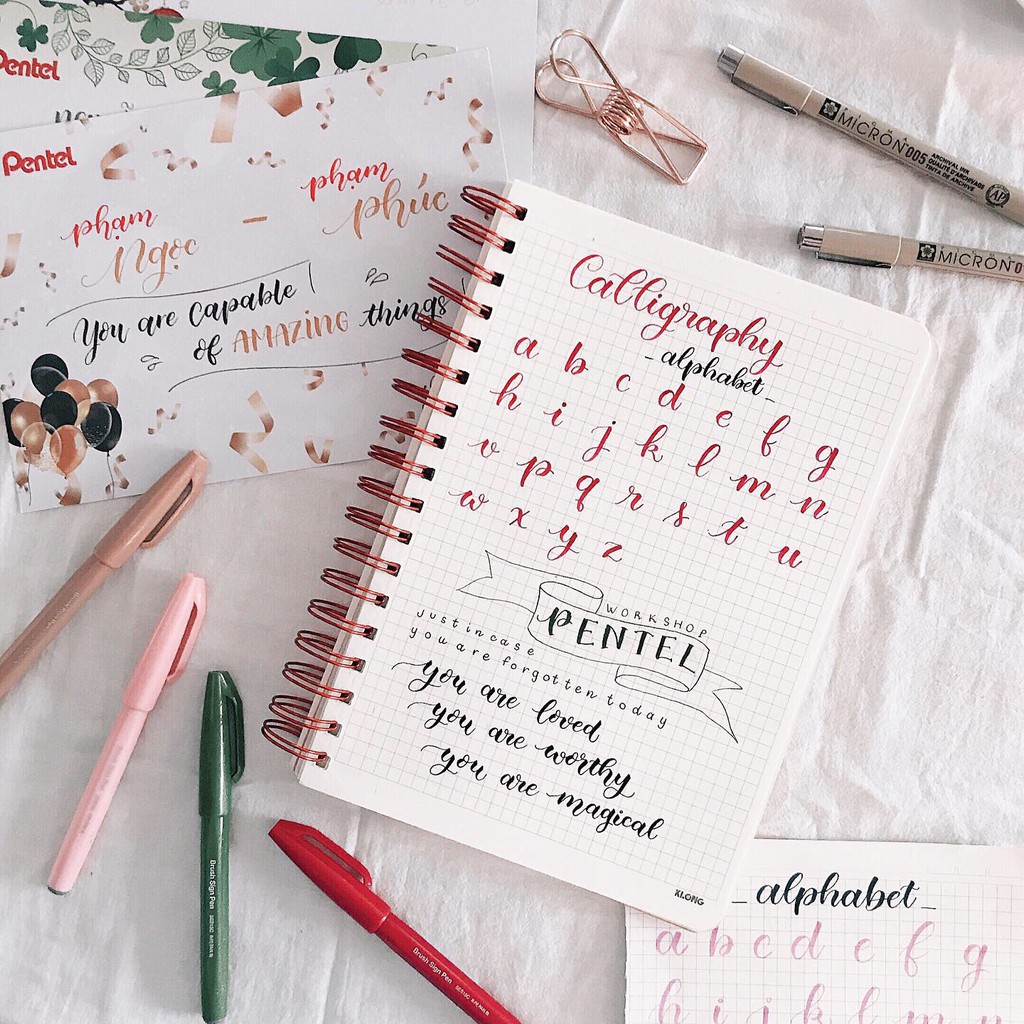 Pentel
Pentel
phạm
ngọc
phạm
phúc
You are capable
of AMAZING things
MICRON 005
ARCHIVAL INK
MICRON 0
Calligraphy
- alphabet -
a b c d e f g
h i j k l m n
o p q r s t u
w x y z
WORKSHOP
PENTEL
just in case
you are forgotten today
you are loved
you are worthy
you are magical
KLONG
Brush Sign Pen
Brush Sign Pen
- alphabet -
a b c d e f g
h i j k l m n